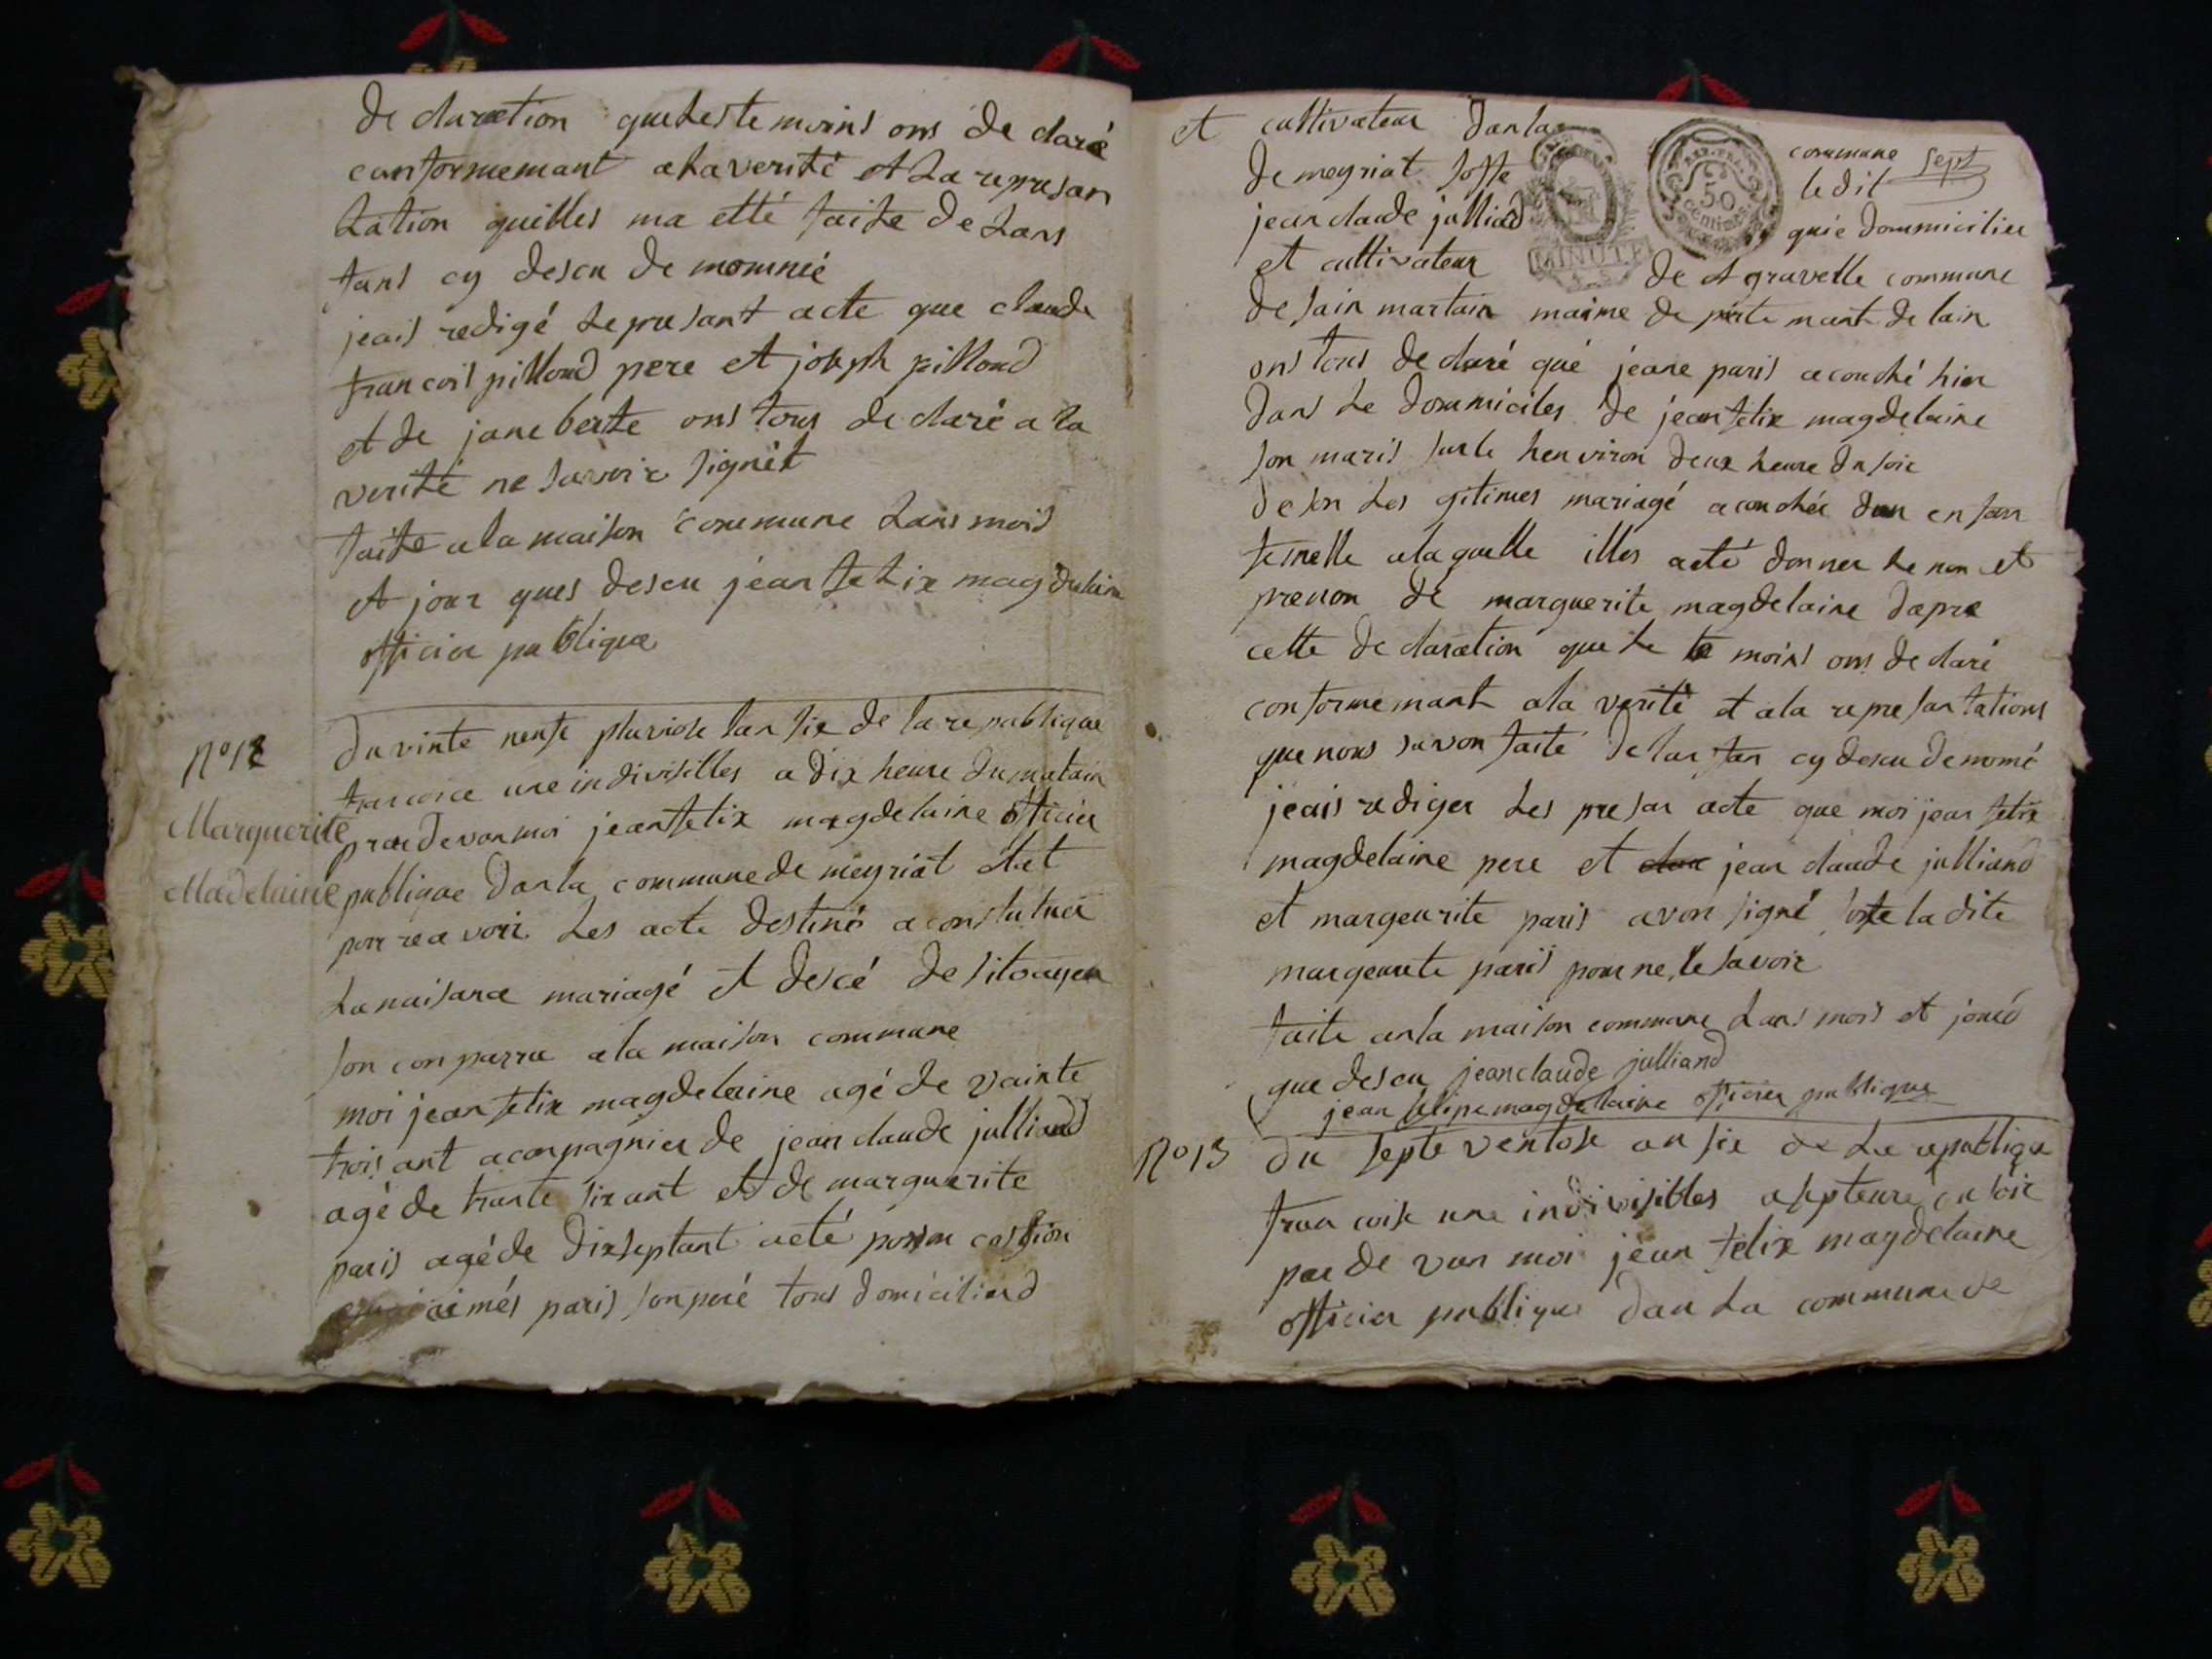 de claration que les te moins ons de claré
conformemant a la verité et La represan
tation quilles ma etté faite de Lans
fans cy descu de nommé
jeais redigé Le presant acte que claude
francois pilloud pere et joseph pilloud
et de jane berte ons tous de claré a la
verité ne savoir signét
faite a la maison commune Lans mois
et jour ques descu jean felix magdelaine
officier publique
N°12
Marguerite
Madelaine
du vinte neufe pluviose lan six de la republique
francoise une indivisilles a dix heure du matain
par devan moi jean felix magdelaine officier
publique dan la commune de meyriat
pour re a voir Les acte destiné a constatuer
La naisance mariagé et descé de sitoayen
son comparru a la maison commune
moi jean felix magdelaine agé de vainte
trois ant acompagnier de jean claude julliand
agé de trante six ant et de marguerite
paris agé de dix sept ant
aimés paris son peré tous domiciliard
et cultivateur dan la commune sept
de meyriat soffe le dit
jean claude julliard quie dommicilier
et cultivateur de gravelle commune
de sain martain maime de parte mant de lain
ons tous de claré qué jeane paris acouché hier
dans Le dommiciles de jean felix magdelaine
son maris sur le henviron deux heure du soir
de son Les gitimes mariagé acouchée dun en fan
femelle a la quelle illes aeté donner Le nom et
prenon de marguerite magdelaine dapre
cette de claration que Le te moins ons de claré
conformemant a la verité et a la represantations
que nous savon faite de lan fan cy descu de nomé
jeais rediger Les presan acte que moi jean felix
magdelaine pere et jean claude julliand
et margeurite paris avon signé la dite
margeurite paris pour ne le savoir
faite an la maison commune Lans mois et joués
que descu jean claude julliand
jean felix magdelaine officier publique
N°13 du septe ventose an six de La republique
francoise une indivisibles a septeure du soir
par de van moi jean felix magdelaine
officier publique dan La commune de
REP. FRA.
50
centimes
MINUTE